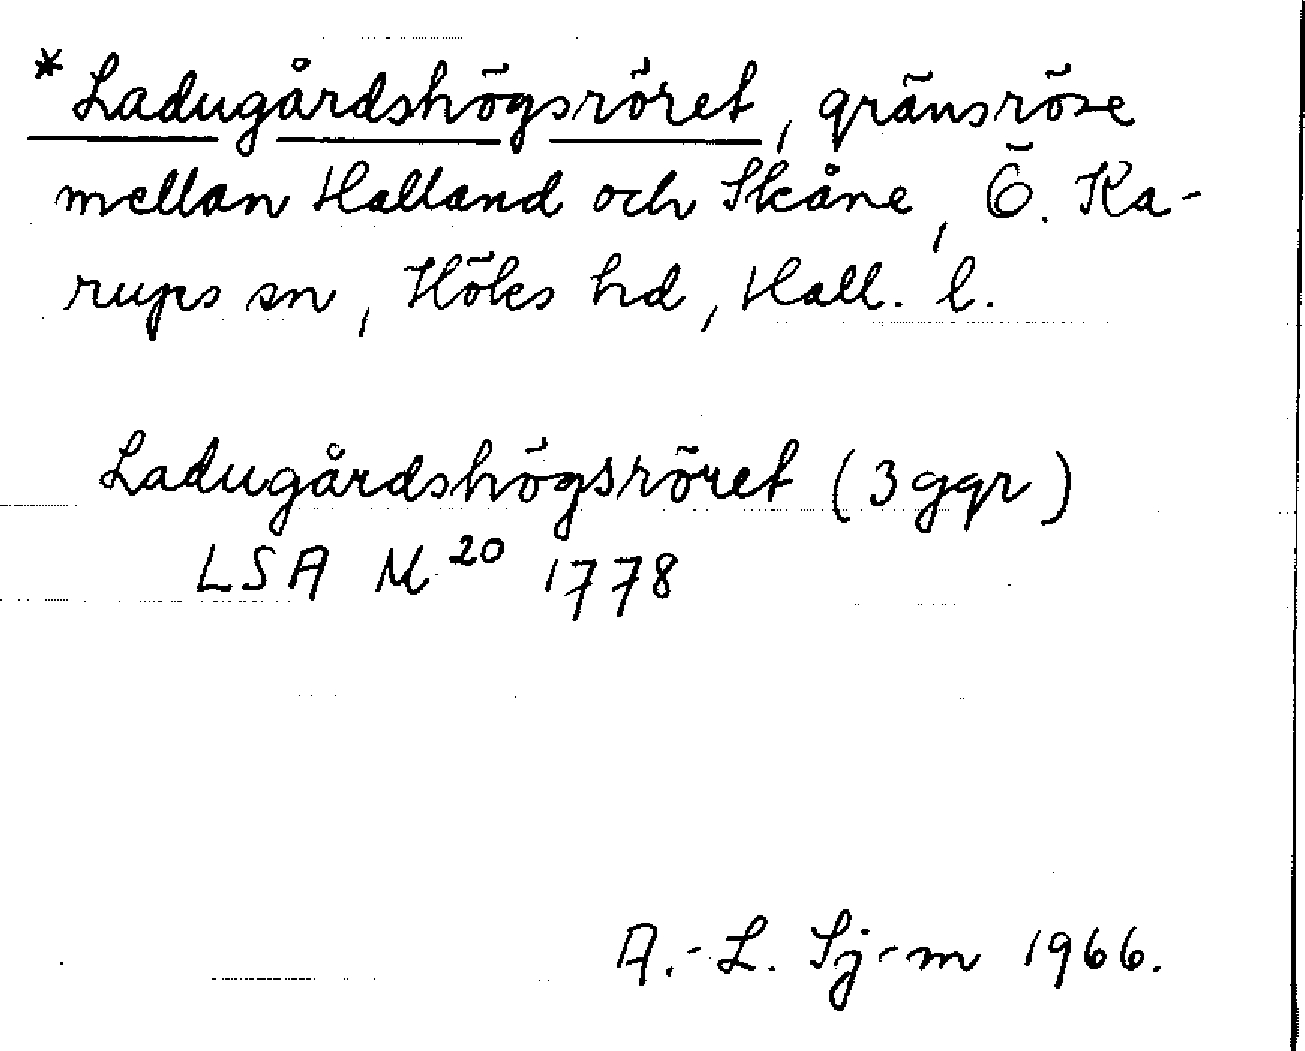 * Ladugårdshögsröret, gränsröse
mellan Halland och Skåne, Ö. Ka-
rups sn, Höks hd, Hall. l.
Ladugårdshögsröret (3 ggr)
LSA M 20 1778
A.-L. Sj-m 1966.